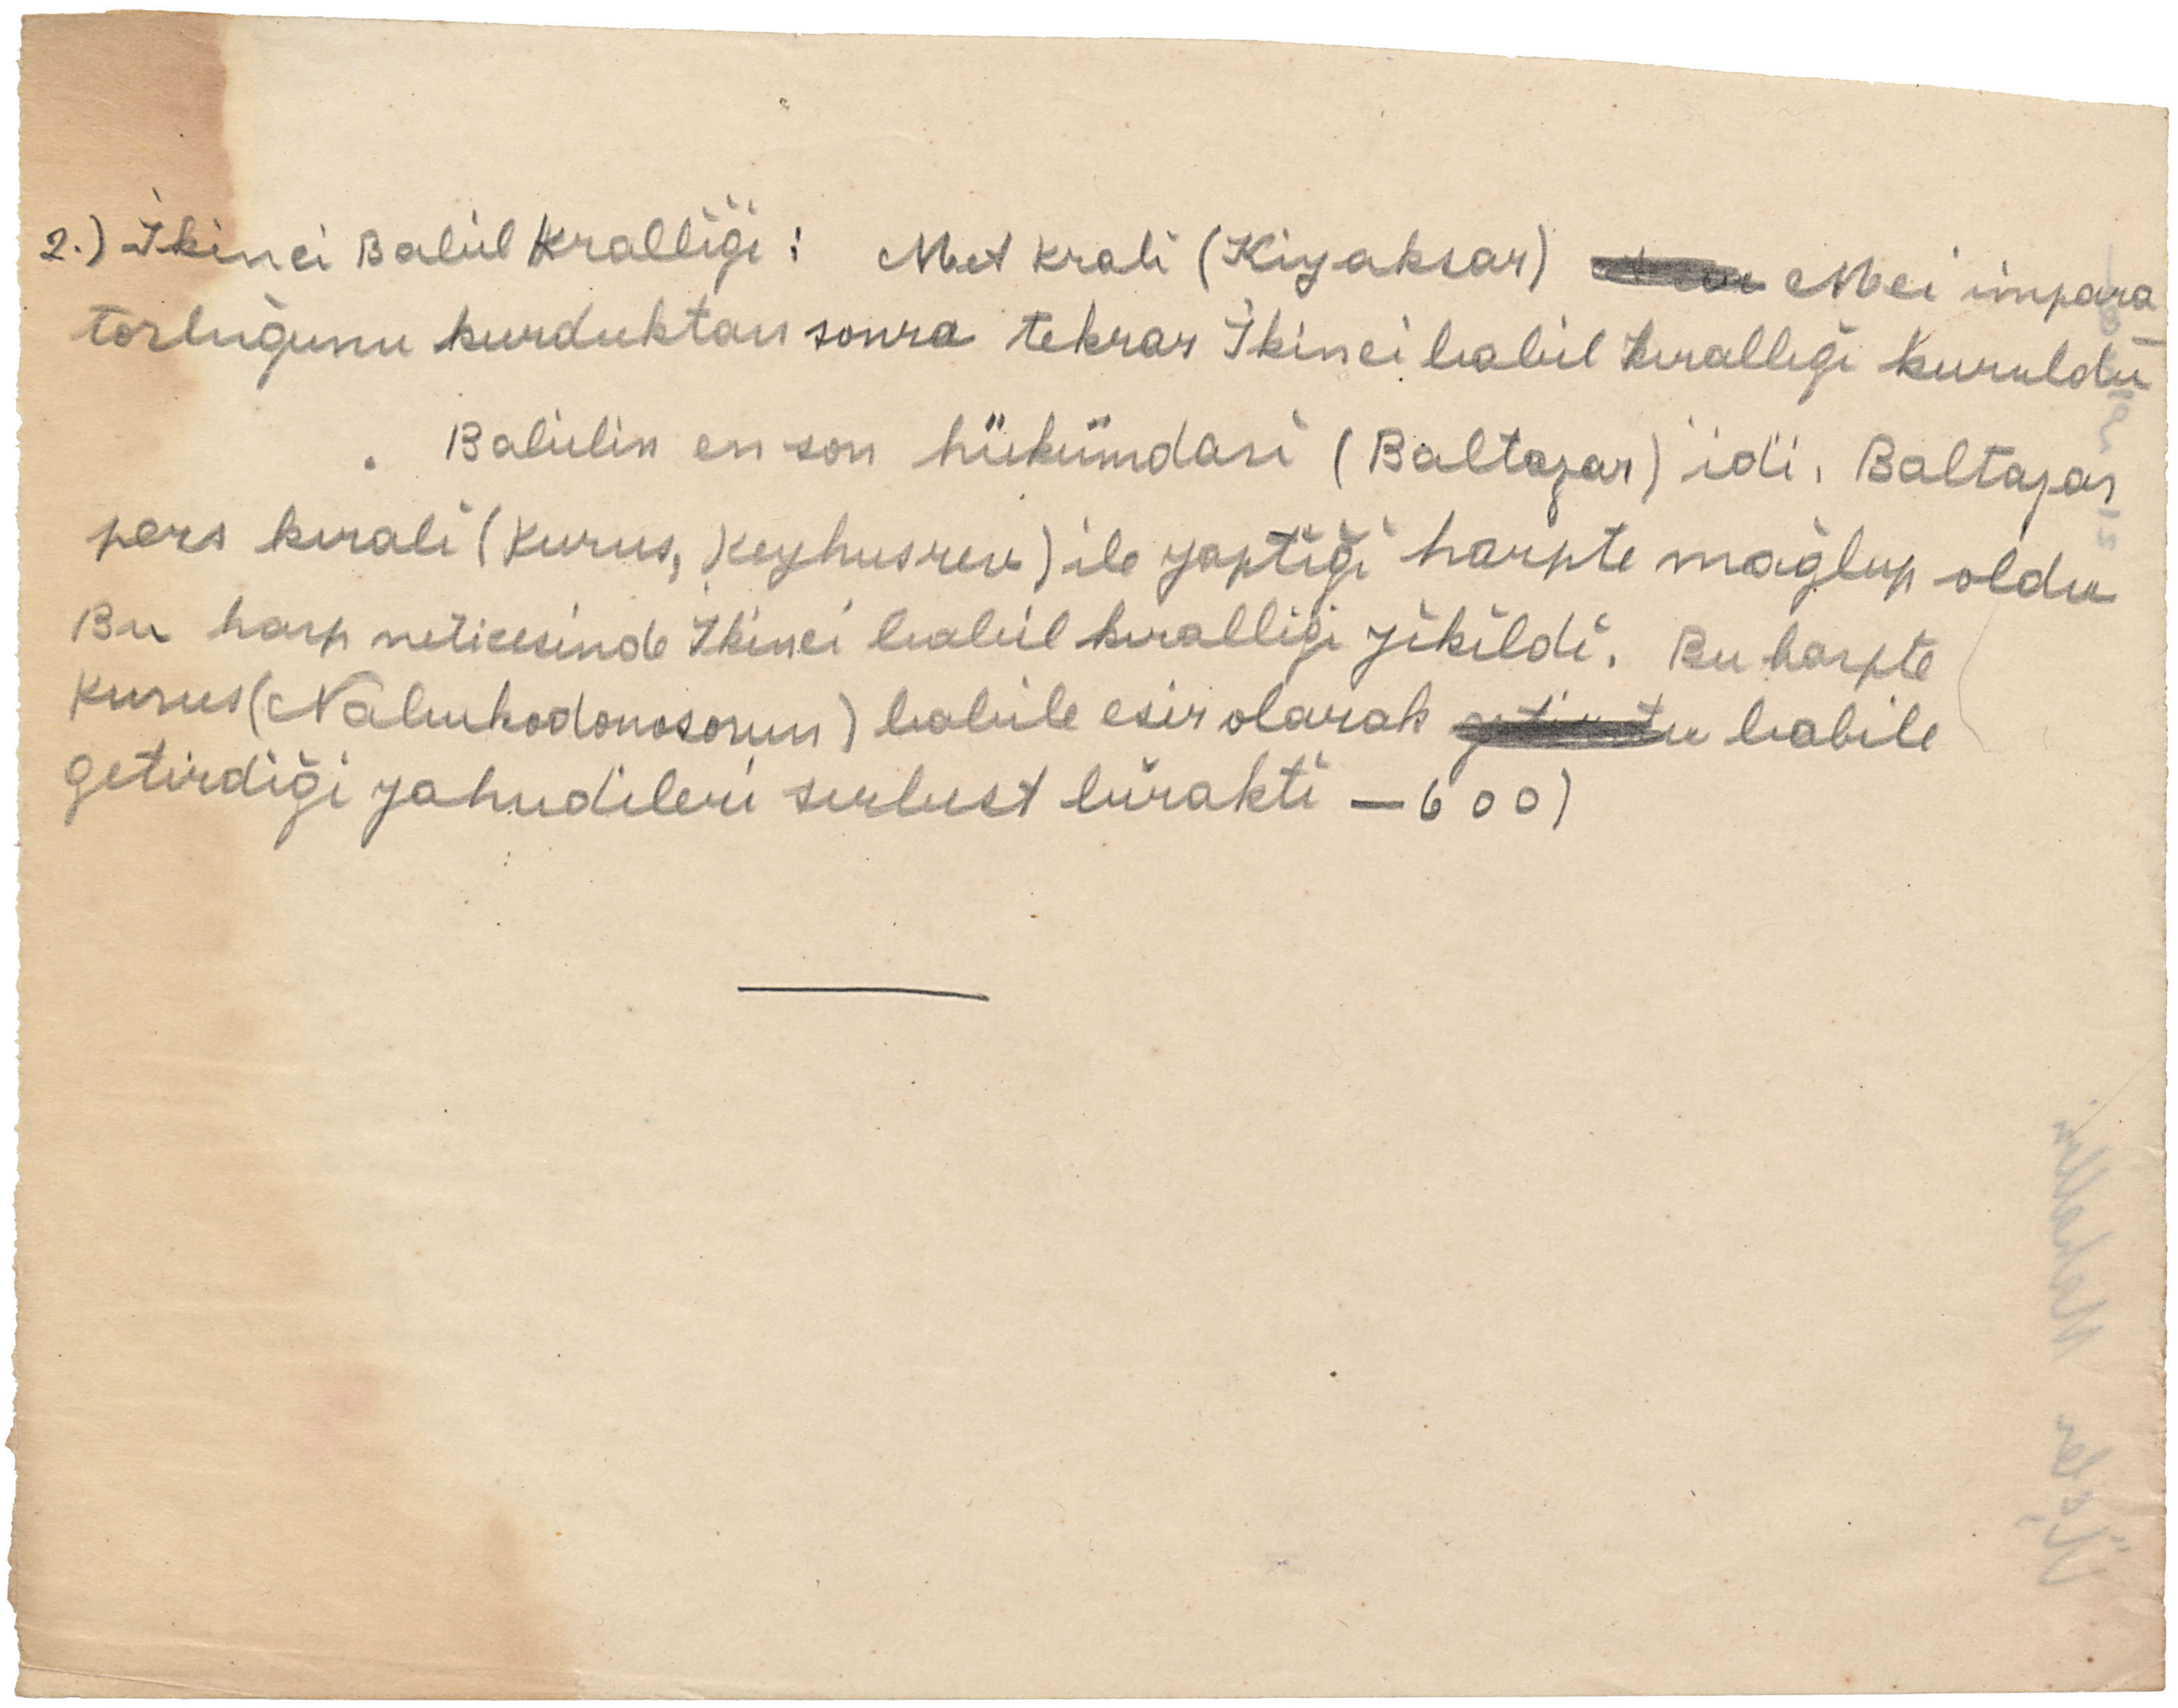 2.) İkinci Babil Kralliği: Met krali (Kiyaksar) Mei impara
torluğunu kurduktan sonra tekrar İkinci babil kıralliği kuruldu
. Babilin en son hükümdari (Baltazar) idi. Baltazar
pers kırali (Kurus, Keyhusrev) ile yaptiği harpte mağlup oldu
Bu harp neticesinde İkinci babil kıralliği yikildi. Bu harpte
Kurus (Nabukodonosorun) babile esir olarak babile
getirdiği yahudileri serbest birakti — 600)